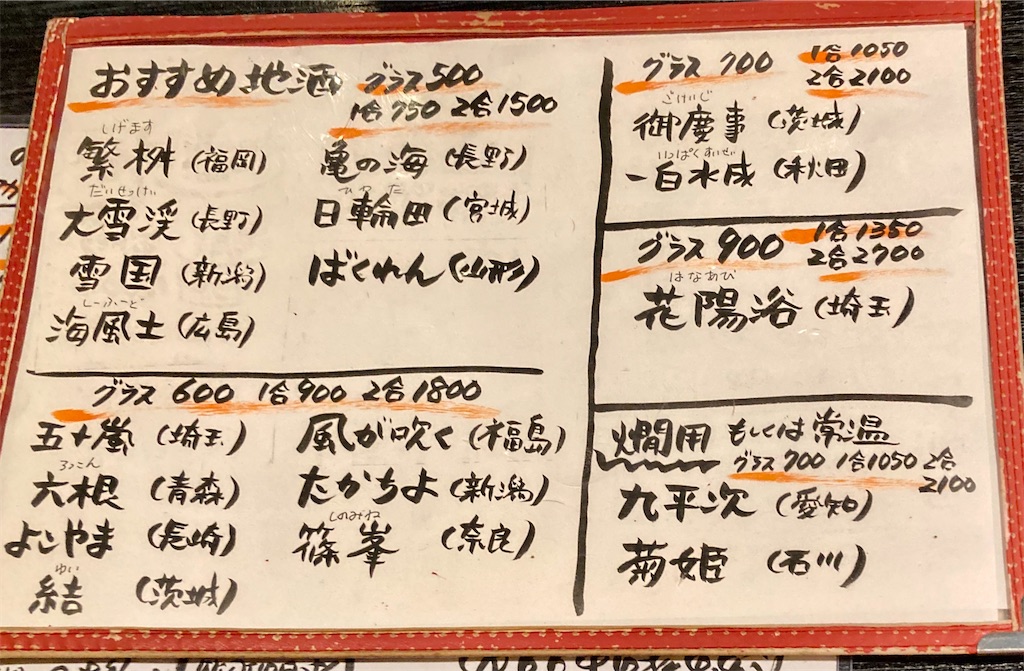 おすすめ地酒 グラス500
1合750 2合1500
しげます
繁桝 (福岡)
だいせっけい
大雪渓 (長野)
雪国 (新潟)
しーふーど
海風土 (広島)
亀の海 (長野)
ひわた
日輪田 (宮城)
ばくれん (山形)
グラス 600 1合900 2合1800
五十嵐 (埼玉)
ろっこん
六根 (青森)
よこやま (長崎)
ゆい
結 (茨城)
風が吹く (福島)
たかちよ (新潟)
しのみね
篠峯 (奈良)
グラス 700 1合1050
2合2100
ごけいじ
御慶事 (茨城)
いっぱくすいせい
一白水成 (秋田)
グラス 900 1合1350
2合2700
はなあび
花陽浴 (埼玉)
燗用 もしくは常温
グラス700 1合1050 2合
2100
九平次 (愛知)
菊姫 (石川)